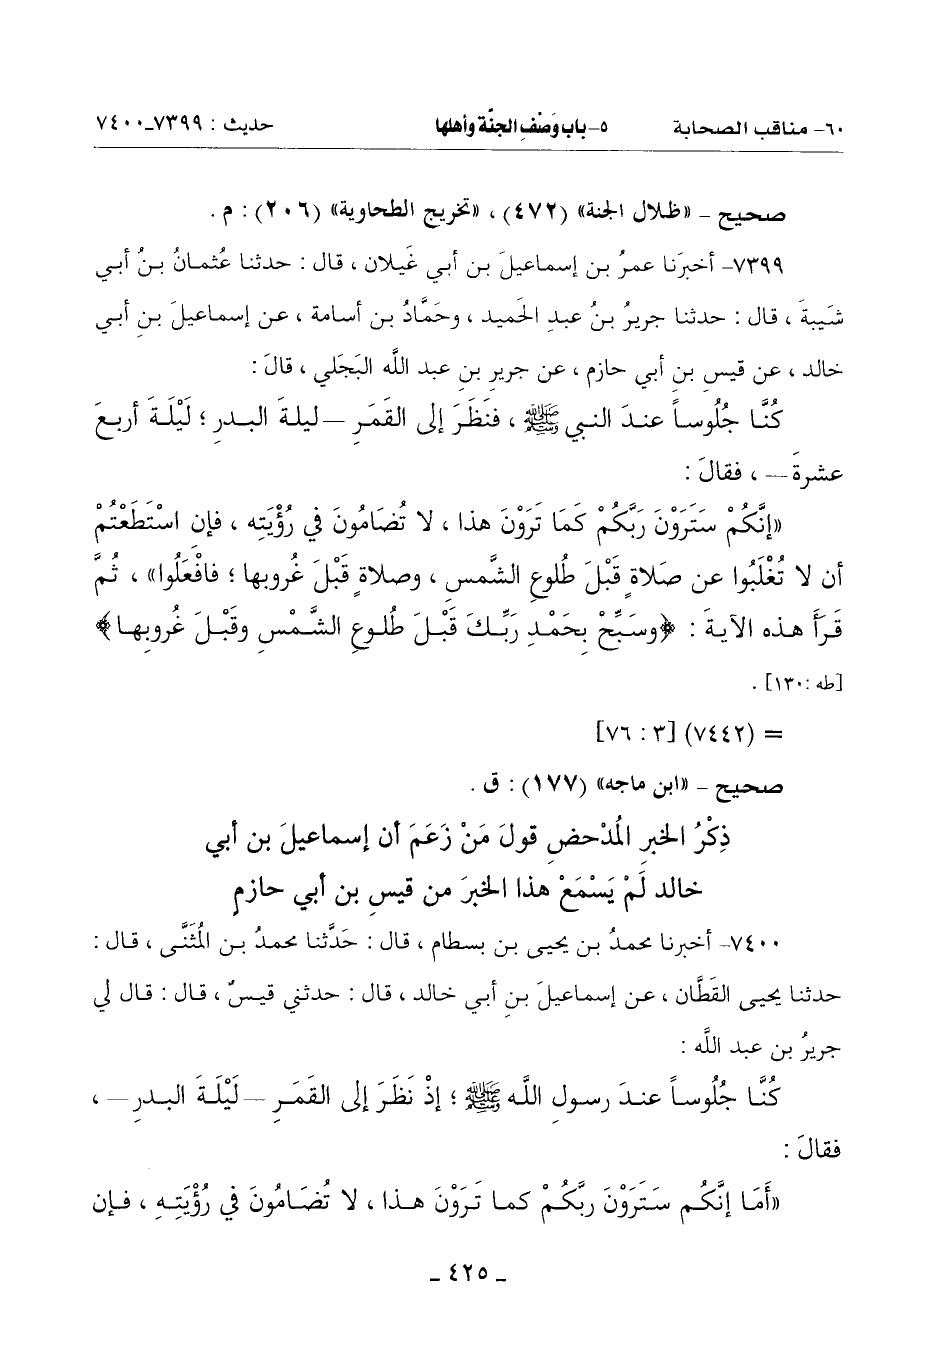 ٦٠- مناقب الصحابة ٥-باب وَصْفِ الجنَّة وأهلها حديث : ٧٣٩٩-٧٤٠٠
صحيح - «ظلال الجنة» (٤٧٢) ، «تخريج الطحاوية» (٢٠٦) : م .
٧٣٩٩- أخبرَنا عمرُ بن إسماعيلَ بن أبي غَيلان ، قال : حدثنا عُثمانُ بنُ أبي
شَيبةَ ، قال : حدثنا جريرُ بنُ عبدِ الحَميد ، وحَمَّادُ بن أسامة ، عن إسماعيلَ بنِ أبي
خالد ، عن قيسِ بنِ أبي حازم ، عن جريرِ بنِ عبد اللَّه البَجَلي ، قالَ :
كُنَّا جُلُوساً عندَ النبي ﷺ ، فنَظَرَ إلى القَمَرِ –ليلةَ البدرِ ؛ لَيْلَةَ أربعَ
عشرةَ– ، فقالَ :
«إنَّكُمْ سَتَرَوْنَ رَبَّكُمْ كَمَا تَرَوْنَ هذا ، لا تُضَامُونَ في رُؤْيَتِه ، فإن اسْتَطَعْتُمْ
أن لا تُغْلَبُوا عن صَلاةٍ قَبْلَ طُلوعِ الشَّمسِ ، وصلاةٍ قَبْلَ غُروبها ؛ فافْعَلُوا» ، ثُمَّ
قَرَأَ هذه الآيةَ : ﴿وسَبِّحْ بِحَمْدِ رَبِّكَ قَبْلَ طُلُوعِ الشَّمْسِ وقَبْلَ غُروبِها﴾
[طه :١٣٠] .
= (٧٤٤٢) [٣ : ٧٦]
صحيح - «ابن ماجه» (١٧٧) : ق .
ذِكْرُ الخبرِ المُدْحضِ قولَ مَنْ زَعَمَ أن إسماعيلَ بن أبي
خالد لَمْ يَسْمَعْ هذا الخبرَ من قيسِ بن أبي حازم
٧٤٠٠- أخبرنا محمدُ بن يحيى بن بسطام ، قال : حَدَّثنا محمدُ بن المُثَنَّى ، قال :
حدثنا يحيى القَطَّان ، عن إسماعيلَ بنِ أبي خالد ، قال : حدثني قيسٌ ، قال : قال لي
جريرُ بن عبد اللَّه :
كُنَّا جُلُوساً عندَ رسولِ اللَّه ﷺ ؛ إذْ نَظَرَ إلى القَمَرِ –لَيْلَةَ البدرِ– ،
فقالَ :
«أَمَا إنَّكُم سَتَرَوْنَ ربَّكُمْ كما تَرَوْنَ هذا ، لا تُضَامُونَ في رُؤْيَتِهِ ، فإن
- ٤٢٥ -